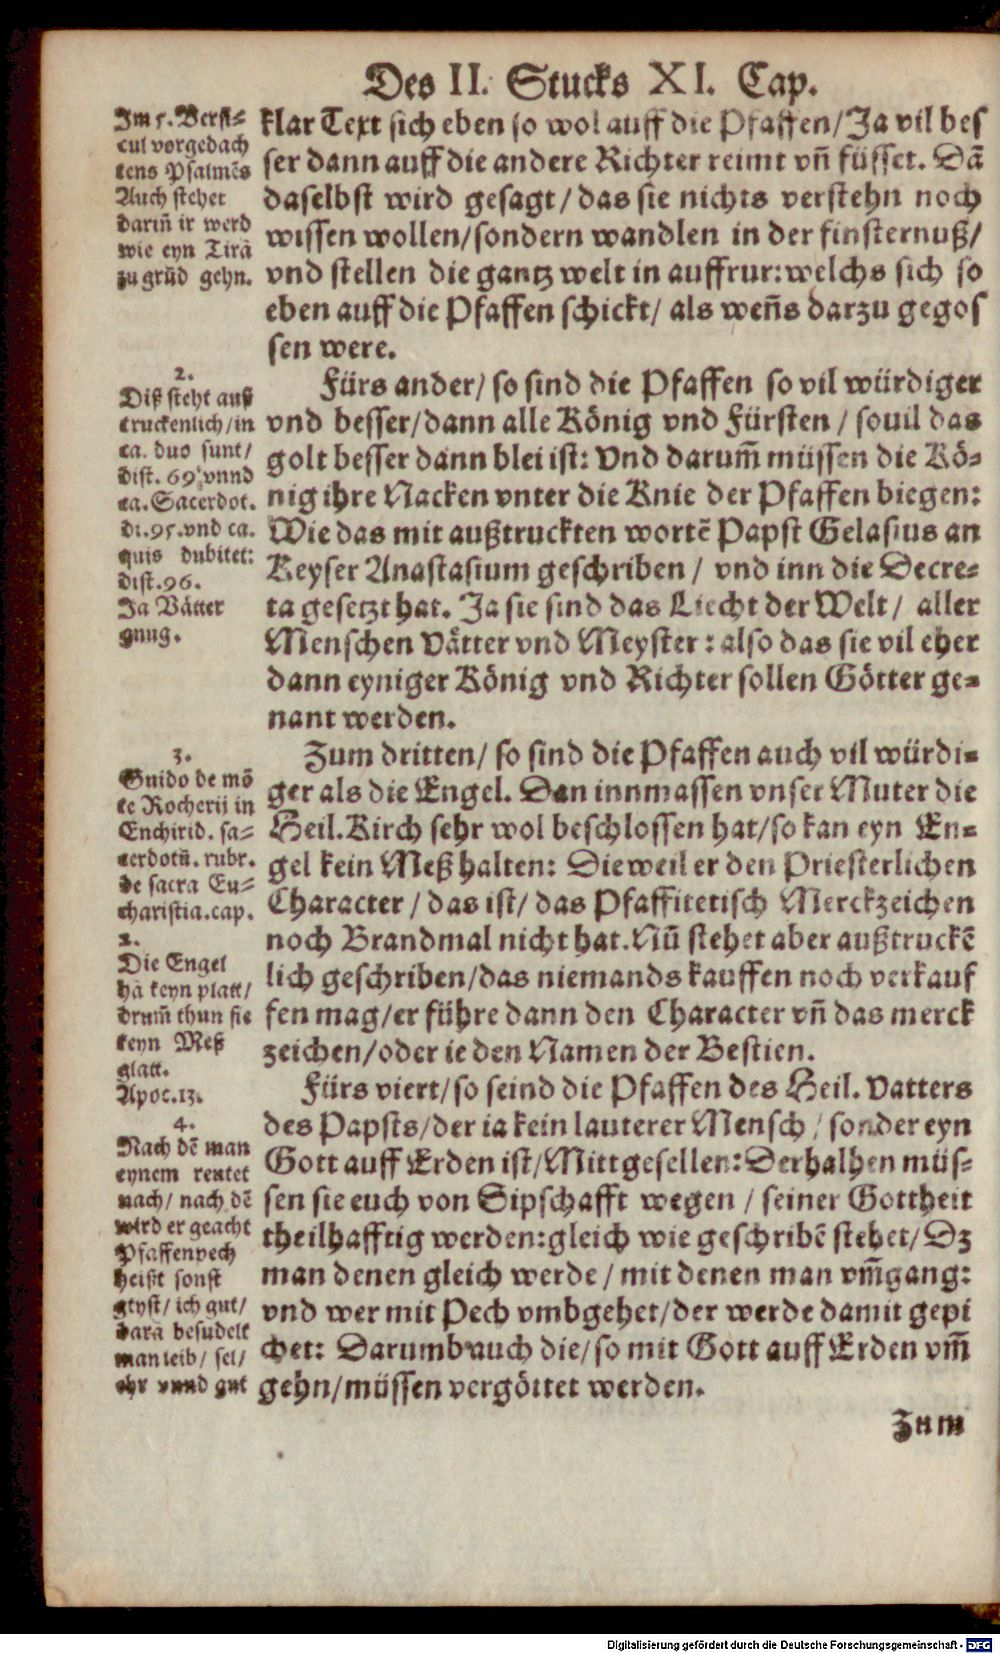 Des II. Stucks XI. Cap.
Im 5. Versi-
cul vorgedach
tens Psalmẽs
Auch stehet
dariñ ir werd
wie eyn Tirã
zu grũd gehn.
klar Text sich eben so wol auff die Pfaffen/Ja vil bes
ser dann auff die andere Richter reimt vñ füsset. Dã
daselbst wird gesagt/das sie nichts verstehn noch
wissen wollen/sondern wandlen in der finsternuß/
vnd stellen die gantz welt in auffrur:welchs sich so
eben auff die Pfaffen schickt/ als weñs darzu gegos
sen were.
2.
Diß steht auß
truckenlich/in
ca. duo sunt/
dist. 69. vnnd
ca. Sacerdot.
di. 95. vnd ca.
quis dubitet:
dist. 96.
Ja Vätter
gnug.
Fürs ander/ so sind die Pfaffen so vil würdiger
vnd besser/dann alle König vnd Fürsten / souil das
golt besser dann blei ist: Vnd darum̃ müssen die Kö-
nig ihre Nacken vnter die Knie der Pfaffen biegen:
Wie das mit außtruckten wortẽ Papst Gelasius an
Keyser Anastasium geschriben / vnd inn die Decre-
ta gesetzt hat. Ja sie sind das Liecht der Welt/ aller
Menschen Vätter vnd Meyster : also das sie vil eher
dann eyniger König vnd Richter sollen Götter ge-
nant werden.
3.
Guido de mõ
te Rocherij in
Enchirid. sa-
cerdotũ. rubr.
de sacra Eu-
charistia. cap.
2.
Die Engel
hã keyn platt/
drum̃ thun sie
keyn Meß
glatt.
Apoc. 13.
Zum dritten/ so sind die Pfaffen auch vil würdi-
ger als die Engel. Dan innmassen vnser Muter die
Heil. Kirch sehr wol beschlossen hat/so kan eyn En-
gel kein Meß halten: Dieweil er den Priesterlichen
Character / das ist/ das Pfaffitetisch Merckzeichen
noch Brandmal nicht hat. Nũ stehet aber außtruckẽ
lich geschriben/das niemands kauffen noch verkauf
fen mag/er führe dann den Character vñ das merck
zeichen/oder ie den Namen der Bestien.
4.
Nach dẽ man
eynem rentet
nach/ nach dẽ
wird er geacht
Pfaffenpech
heißt sonst
gtyst/ ich gut/
darã besudelt
man leib/ sel/
ehr vnnd gut
Fürs viert/so seind die Pfaffen des Heil. Vatters
des Papsts/der ia kein lauterer Mensch / sonder eyn
Gott auff Erden ist/Mittgesellen: Derhalben müs-
sen sie euch von Sipschafft wegen / seiner Gottheit
theilhafftig werden:gleich wie geschribẽ stehet/ Dz
man denen gleich werde / mit denen man vm̃gang:
vnd wer mit Pech vmbgehet/der werde damit gepi
chet: Darumb auch die/ so mit Gott auff Erden vm̃
gehn/müssen vergöttet werden.
Zum
Digitalisierung gefördert durch die Deutsche Forschungsgemeinschaft - DFG